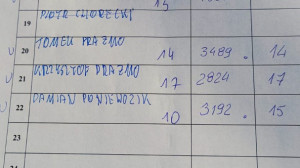 19 PIOTR CHORECKI 15
20 TOMEK PRAZNO 14 3489. 14
21 KRZYSZTOF PRAZNO 17 2824 17
22 DAMIAN PONIEWOZIK 10 3192. 15
23